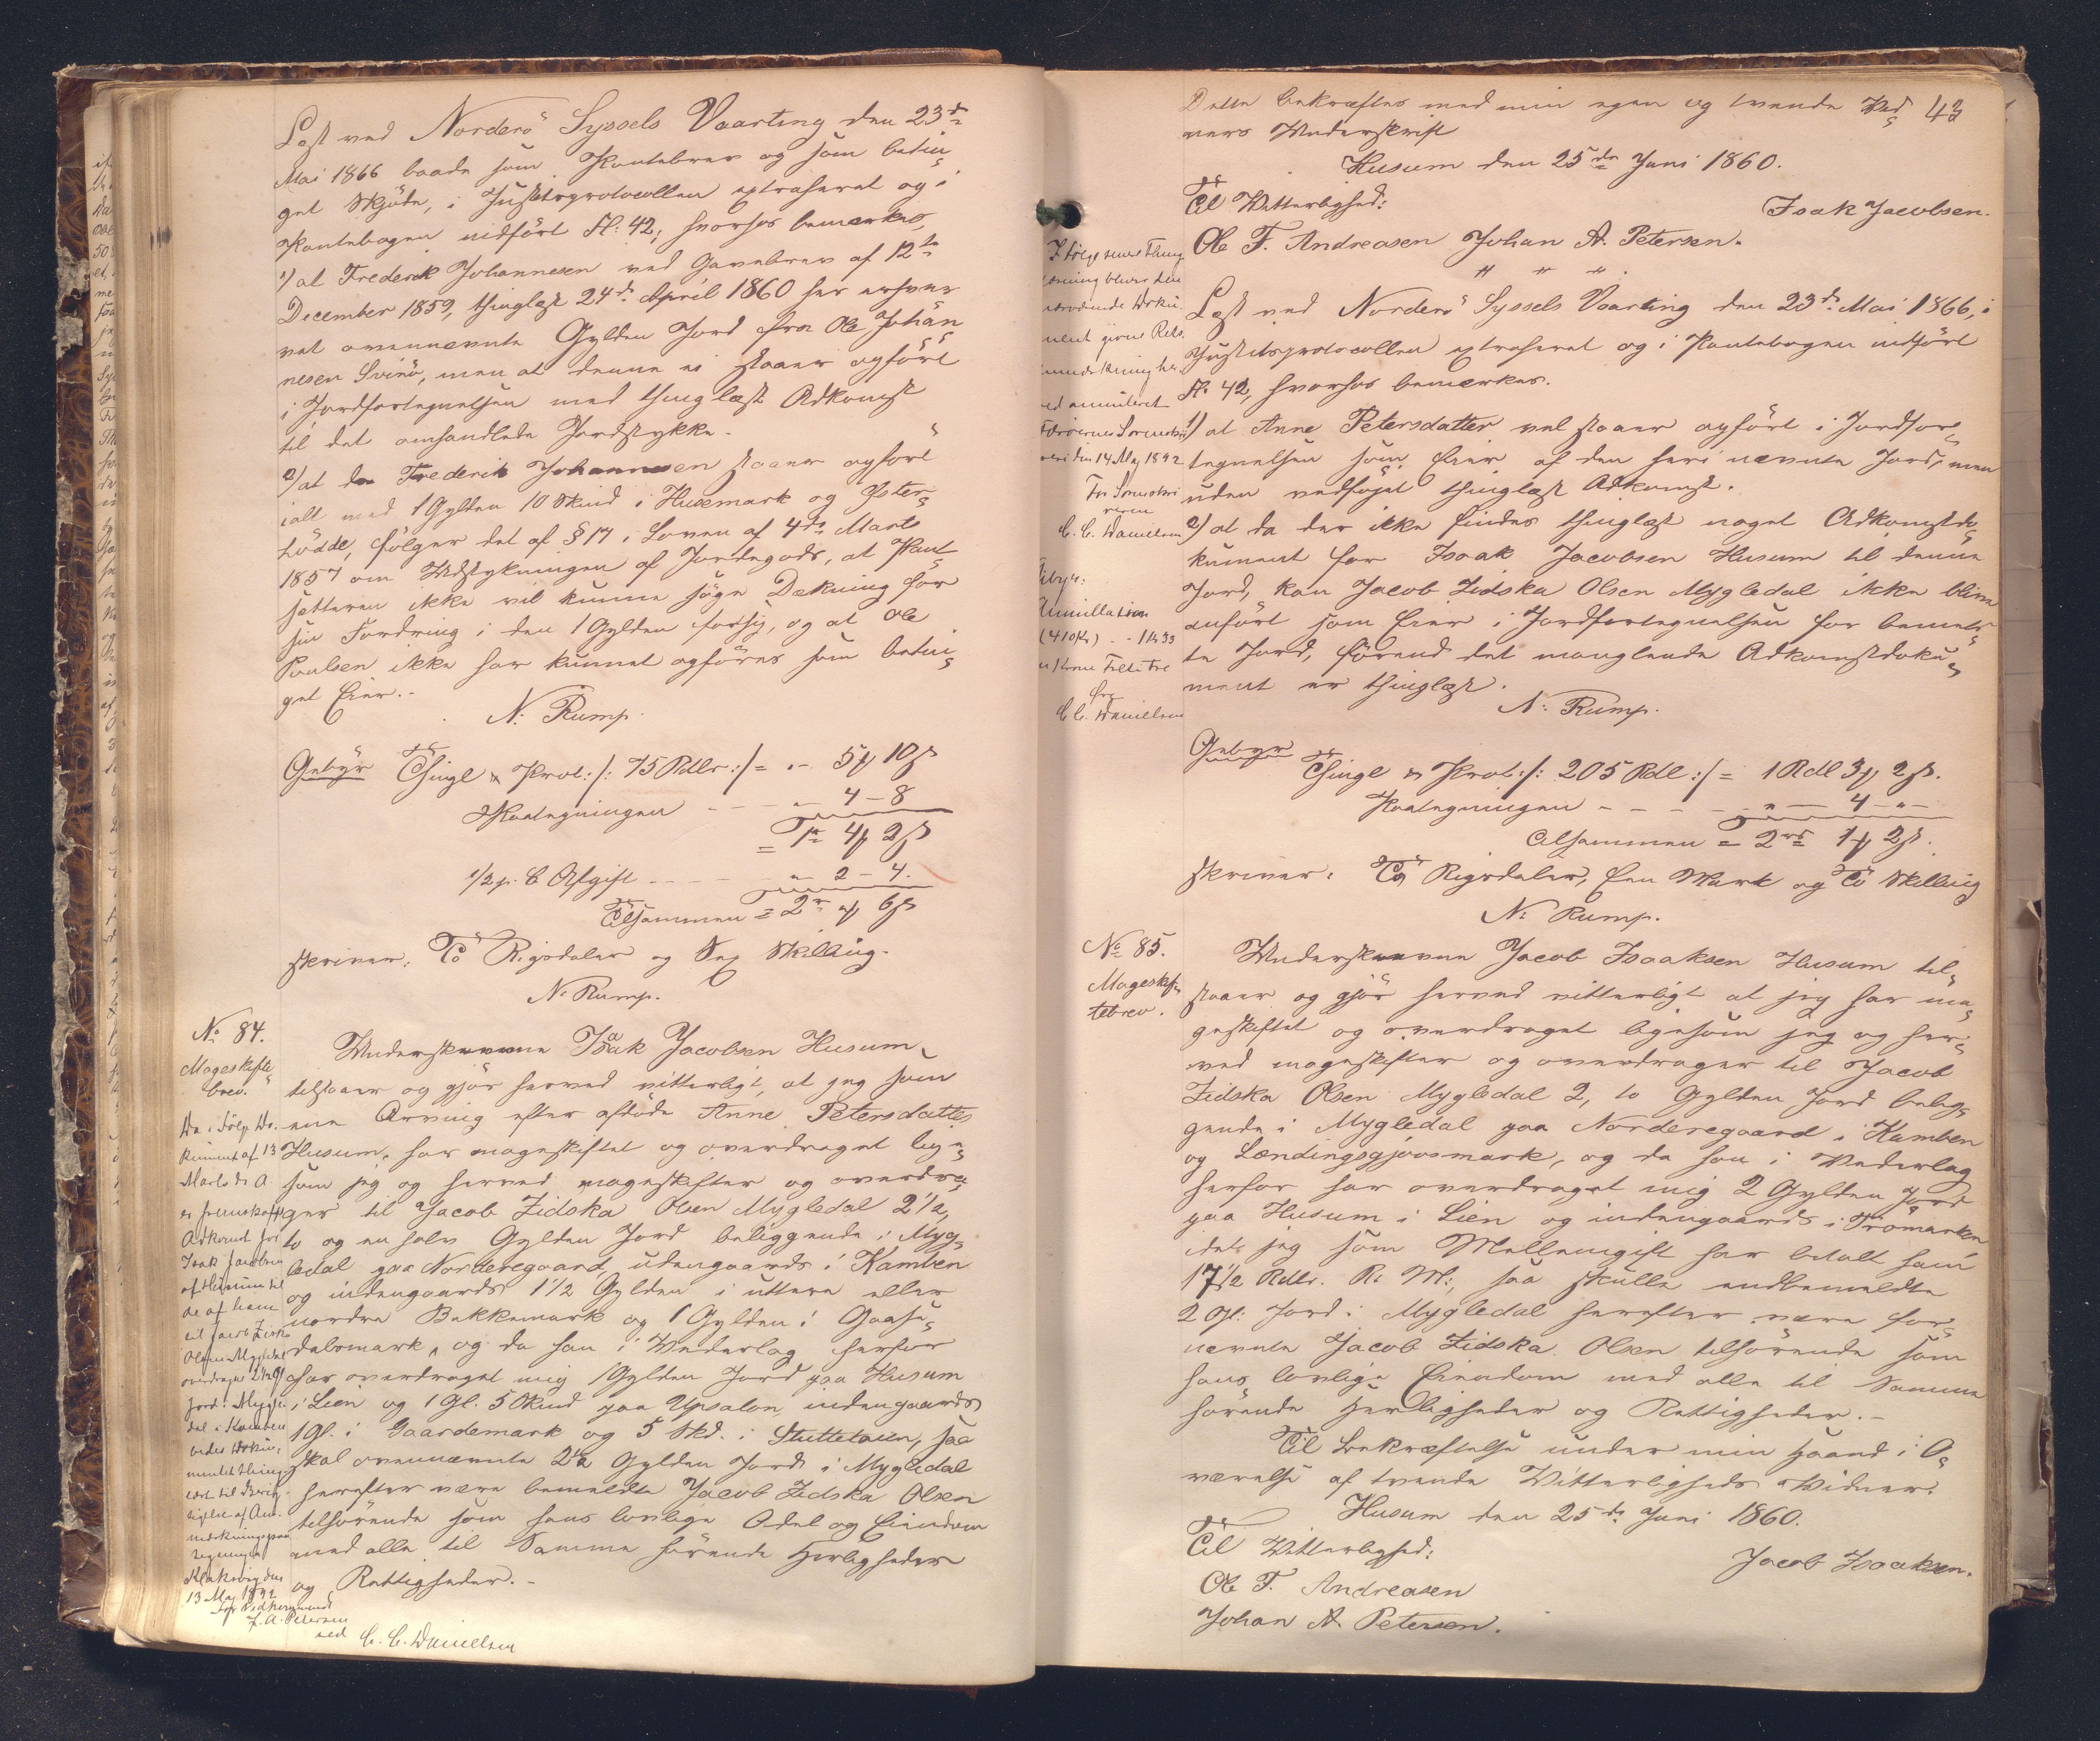 Læst ved Norderö Syssels Vaarting den 23de
Mai 1866 baade som Pantebrev og som betin„
get Skjöde, i Justitsprotocollen extraheret og i
Pantebogen indfört fl: 42, hvorhos bemærkes,
1) at Frederik Johannesen ved Gavebrev af 12te
December 1859, thinglæst 24de April 1860 har erhver
vet ovennævnte Gylden Jord fra Ole Johan„
nesen Svinö, men at denne ei staaer opfört
i Jordfortegnelsen med thinglæst Adkomst
til det omhandlede Jordstykke.
2) at da Frederik Johannesen staaer opfört
ialt med 1 Gylden 10 Skind i Husemark og Öster„
Lödde, fölger det af § 17 i Loven af 4de Marts
1857 om Udstykningen af Jordegods, at Pant„
sætteren ikke vil kunne söge Dækning for
sin Fordring i den 1 Gylden forsij, og at Ole
Poulsen ikke har kunnet opföres som betin„
get Eier.-
N: Rump.
Gebyr Thingl & Prot:/: 75 Rdlr :/ = „- 5 ꝟ 10 ß
Paategningen - - „- 4 - 8
= 1 rd 4 ꝟ 2 ß
1/2 p. C Afgift - - - - „- 2 - 4.
Tilsammen = 2 rd „ ꝟ 6 ß
skriver: To Rigsdaler og Sex Skilling.
N: Rump.
No 84.
Mageskifte
brev.
Underskrevne Isaak Jacobsen Husum
tilstaaer og gjör herved vitterligt, at jeg som
een Arving efter afdöde Anne Petersdatter
Husum, har mageskiftet og overdraget lige„
som jeg og herved mageskifter og overdra„
ger til Jacob Zidska Olsen Mygledal 2 1/2,
to og en halv Gylden Jord beliggende i Myg„
ledal paa Norderegaard, udengaards i Kamben
og indengaards 1 1/2 Gylden i uttere eller
nordre Bakkemark og 1 Gylden i Gaase„
dalsmark, og da han i Vederlag herfor
har overdraget mig 1 Gylden Jord paa Husum
i Lien og 1 Gl. 5 Skind paa Upsalon, indengaards
1 Gl. i Gaardemark og 5 Skd. i Stuttetoien, saa
skal ovennævnte 2 1/2 Gylden Jord i Mygledal
herefter være bemeldte Jacob Zidska Olsen
tilhörende som hans lovlige Odel og Eiendom
med alle til Samme hörende Herligheder
og Rettigheder.-
Da i Fölge Do.
kument af 13
Marts d. A.
er fremskaffet
Adkomst for
Isak Jacobsen
af Husum til
de af ham
til Jacob Zidska
Olsen Mygledal
overdragne 2 1/2 Gl
Jord i Mygle
dal i Kamben
bedes Doku„
mentet thing
læst til Berig„
tigelse af An„
mærkningspaa
tegningen
Klaksvig den
13 Maj 1892
J. A. Petersen
ved C. C. Danielsen
43
Dette bekræftes med min egen og tvende Vid„
ners Underskrift
Husum den 25de Juni 1860.
Isak Jacobsen.
Til Vitterlighed:
Ole F. Andreasen Johan A. Petersen.
„ „ „
Læst ved Norderö Syssels Vaarting den 23de Mai 1866, i
Justitsprotocollen extraheret og i Pantebogen indfört
fl. 42, hvorhos bemærkes.
1) at Anne Petersdatter vel staaer opfört i Jordfor„
tegnelsen som Eier af den heri nævnte Jord, men
uden vedföjet thinglæst Adkomst.
2) at da der ikke findes thinglæst noget Adkomstdo„
kument for Isaak Jacobsen Husum til denne
Jord, kan Jacob Zidska Olsen Mygledal ikke blive
anfört som Eier i Jordfortegnelsen for bemeld„
te Jord, förend det manglende Adkomstdoku„
ment er thinglæst.
N: Rump.
Gebyr
Thingl & Prot:/: 205 Rdl :/ = 1 Rdl 3 ꝟ 2 ß.
Paategningen - - - - - „ — 4 - „ -
Tilsammen = 2 rd 1 ꝟ 2 ß.
skriver: To Rigsdaler, Een Mark og To Skilling
N: Rump.
I Fölge senere Thing
læsning bliver den
nærværende Doku
ment givne Rets
anmærkning her
ved annulleret
Færöernes Sorenskri
veri den 14 Maj 1892
For Sorenskri
veren
C. C. Danielsen
Gebyr:
Annullation
(410 Kr) - - 1 Kr 33
en Krone Treti Tre
Øre
C C. Danielsen
No 85.
Mageskif„
tebrev.
Underskrevne Jacob Isaaksen Husum til„
staaer og gjör herved vitterligt at jeg har ma„
geskiftet og overdraget ligesom jeg og her„
ved mageskifter og overdrager til Jacob
Zidska Olsen Mygledal 2, to Gylden Jord belig„
gende i Mygledal paa Norderegaard i Kamben
og Lændingsgjovsmark, og da han i Vederlag
herfor har overdraget mig 2 Gylden Jord
paa Husum i Lien og indengaards i Trömarken
idet jeg som Mellemgift har betalt ham
17 1/2 Rdlr. R: M:, saa skulle endbemeldte
2 Gl: Jord i Mygledal herefter være for„
nævnte Jacob Zidska Olsen tilhörende som
hans lovlige Eiendom med alle til Samme
hörende Herligheder og Rettigheder.-
Til Bekræftelse under min Haand i O„
værelse af tvende Vitterligheds Vidner.
Husum den 25de Juni 1860.
Jacob Isaaksen.
Til Vitterlighed:
Ole F. Andreasen
Johan A. Petersen.